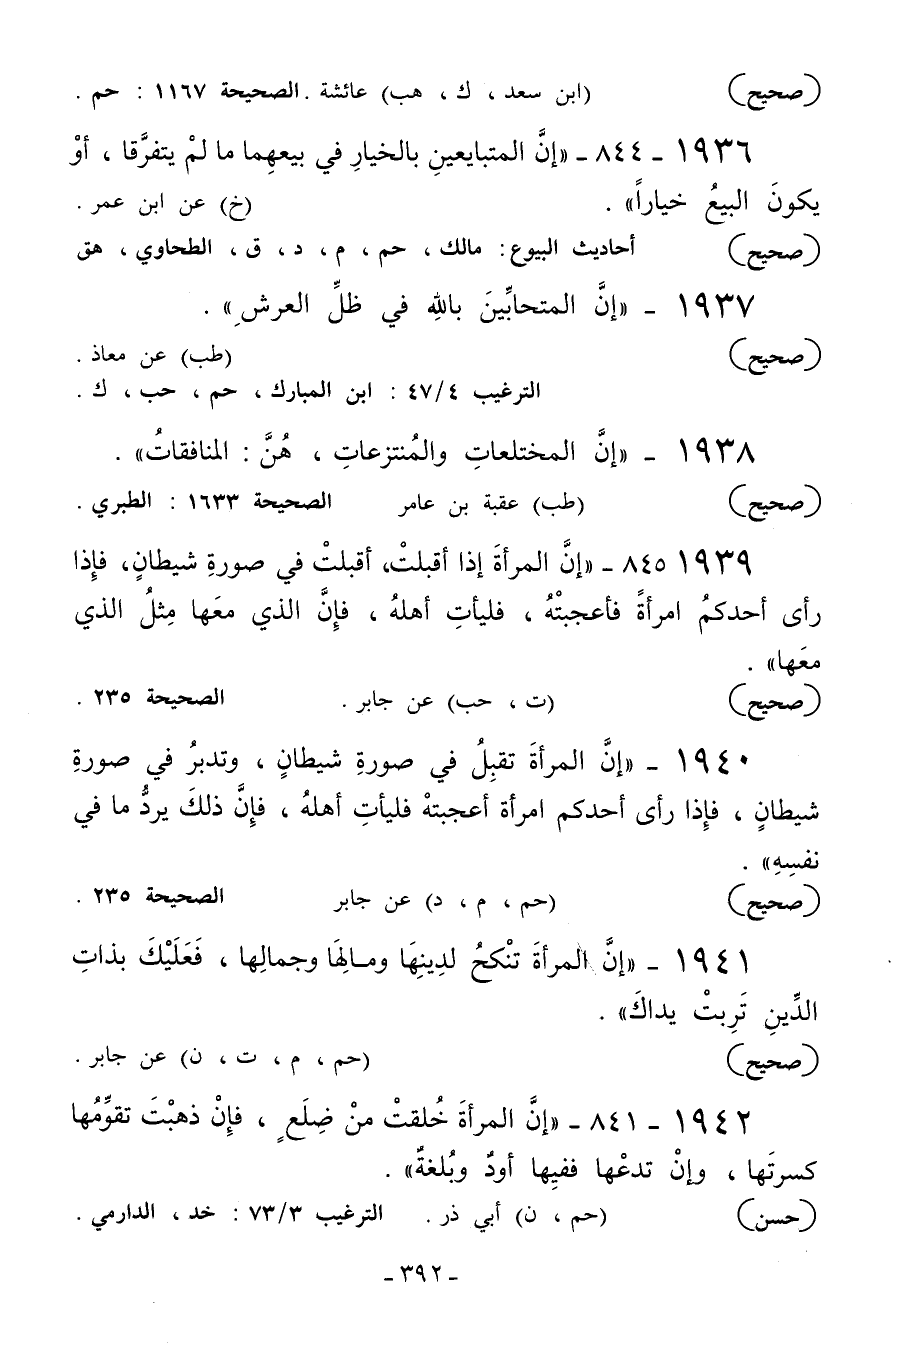 (صحيح) (ابن سعد ، ك ، هب) عائشة . الصحيحة ١١٦٧ : حم .
١٩٣٦ ـ ٨٤٤ ـ «إنَّ المتبايعينِ بالخيارِ في بيعهِما ما لمْ يتفرَّقا ، أوْ
يكونَ البيعُ خياراً» . (خ) عن ابن عمر .
(صحيح) أحاديث البيوع : مالك ، حم ، م ، د ، ق ، الطحاوي ، هق
١٩٣٧ ـ «إنَّ المتحابِّينَ باللهِ في ظلِّ العرشِ» .
(صحيح) (طب) عن معاذ .
الترغيب ٤/ ٤٧ : ابن المبارك ، حم ، حب ، ك .
١٩٣٨ ـ «إنَّ المختلعاتِ والمُنتزعاتِ ، هُنَّ : المنافقاتُ» .
(صحيح) (طب) عقبة بن عامر الصحيحة ١٦٣٣ : الطبري .
١٩٣٩ ٨٤٥ ـ «إنَّ المرأةَ إذا أقبلتْ، أقبلتْ في صورةِ شيطانٍ، فإِذا
رأى أحدكمُ امرأةً فأعجبتْهُ ، فليأتِ أهلهُ ، فإنَّ الذي معَها مِثلُ الذي
معَها» .
(صحيح) (ت ، حب) عن جابر . الصحيحة ٢٣٥ .
١٩٤٠ ـ «إنَّ المرأةَ تقبِلُ في صورةِ شيطانٍ ، وتدبرُ في صورةِ
شيطانٍ ، فإِذا رأى أحدكم امرأة أعجبتهْ فليأتِ أهلهُ ، فإنَّ ذلكَ يردُّ ما في
نفسِهِ» .
(صحيح) (حم ، م ، د) عن جابر الصحيحة ٢٣٥ .
١٩٤١ ـ «إنَّ المرأةَ تنْكحُ لدِينِهَا ومالِهَا وجمالِها ، فَعَلَيْكَ بذاتِ
الدِّينِ تَرِبتْ يداكَ» .
(صحيح) (حم ، م ، ت ، ن) عن جابر .
١٩٤٢ ـ ٨٤١ ـ «إنَّ المرأةَ خُلقتْ منْ ضِلَعٍ ، فإنْ ذهبْتَ تقوِّمُها
كسرتَها ، وإنْ تدعْها ففيِها أودٌ وبُلغةٌ» .
(حسن) (حم ، ن) أبي ذر . الترغيب ٣/ ٧٣ : خد ، الدارمي .
ـ ٣٩٢ ـ